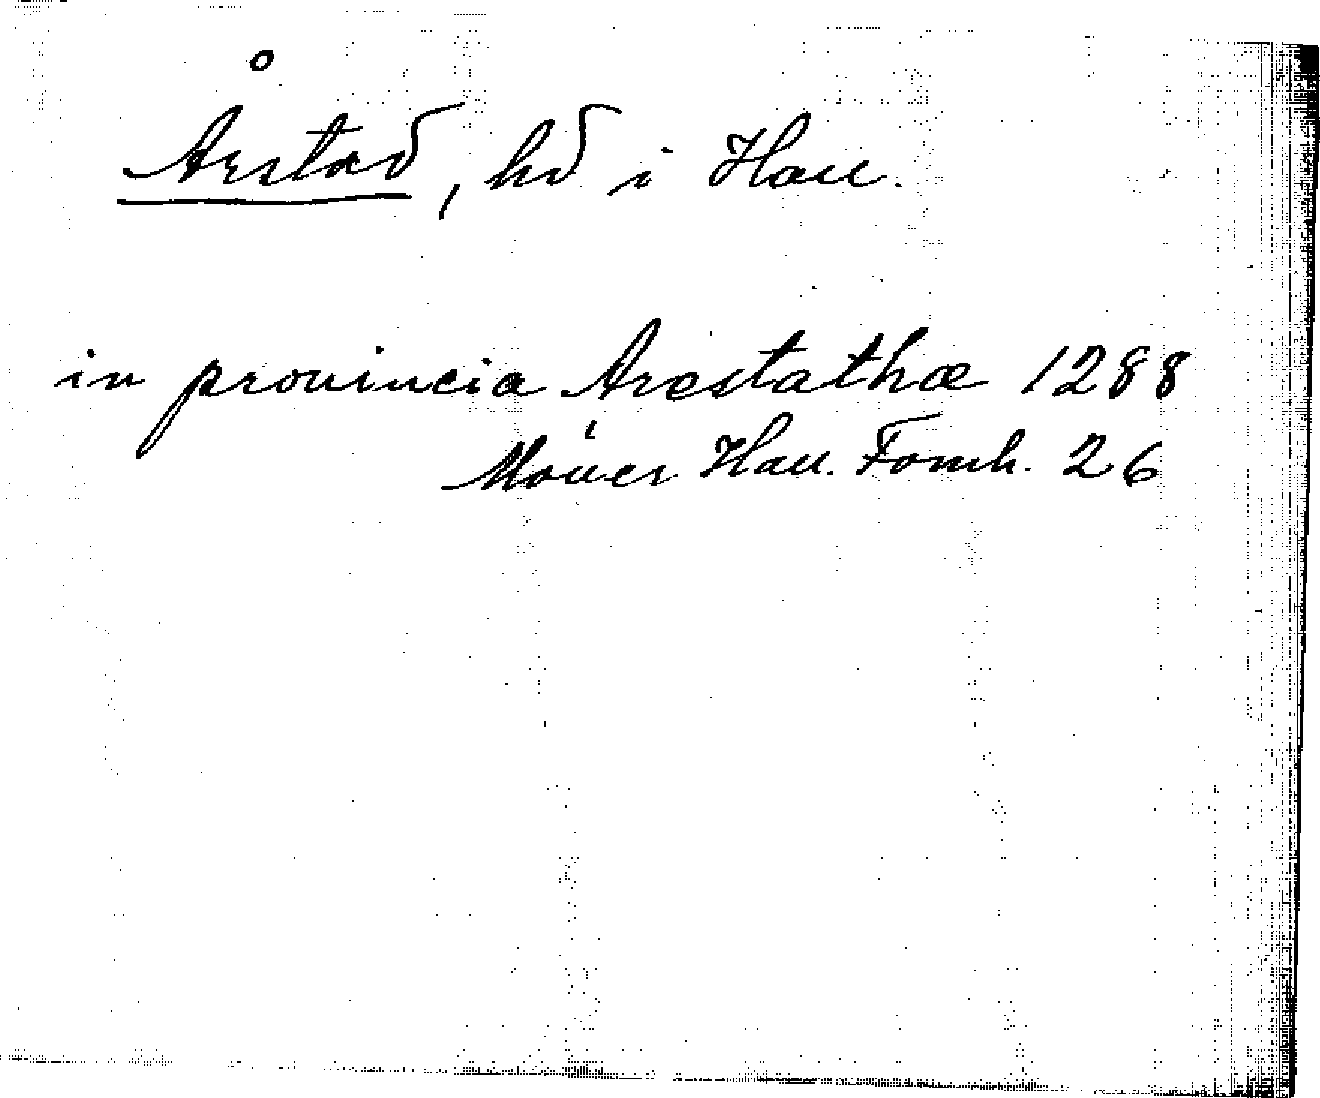 Årstad, hd i Hall.
in prouincia Arestathæ 1288
Mower Hall. Fornh. 26